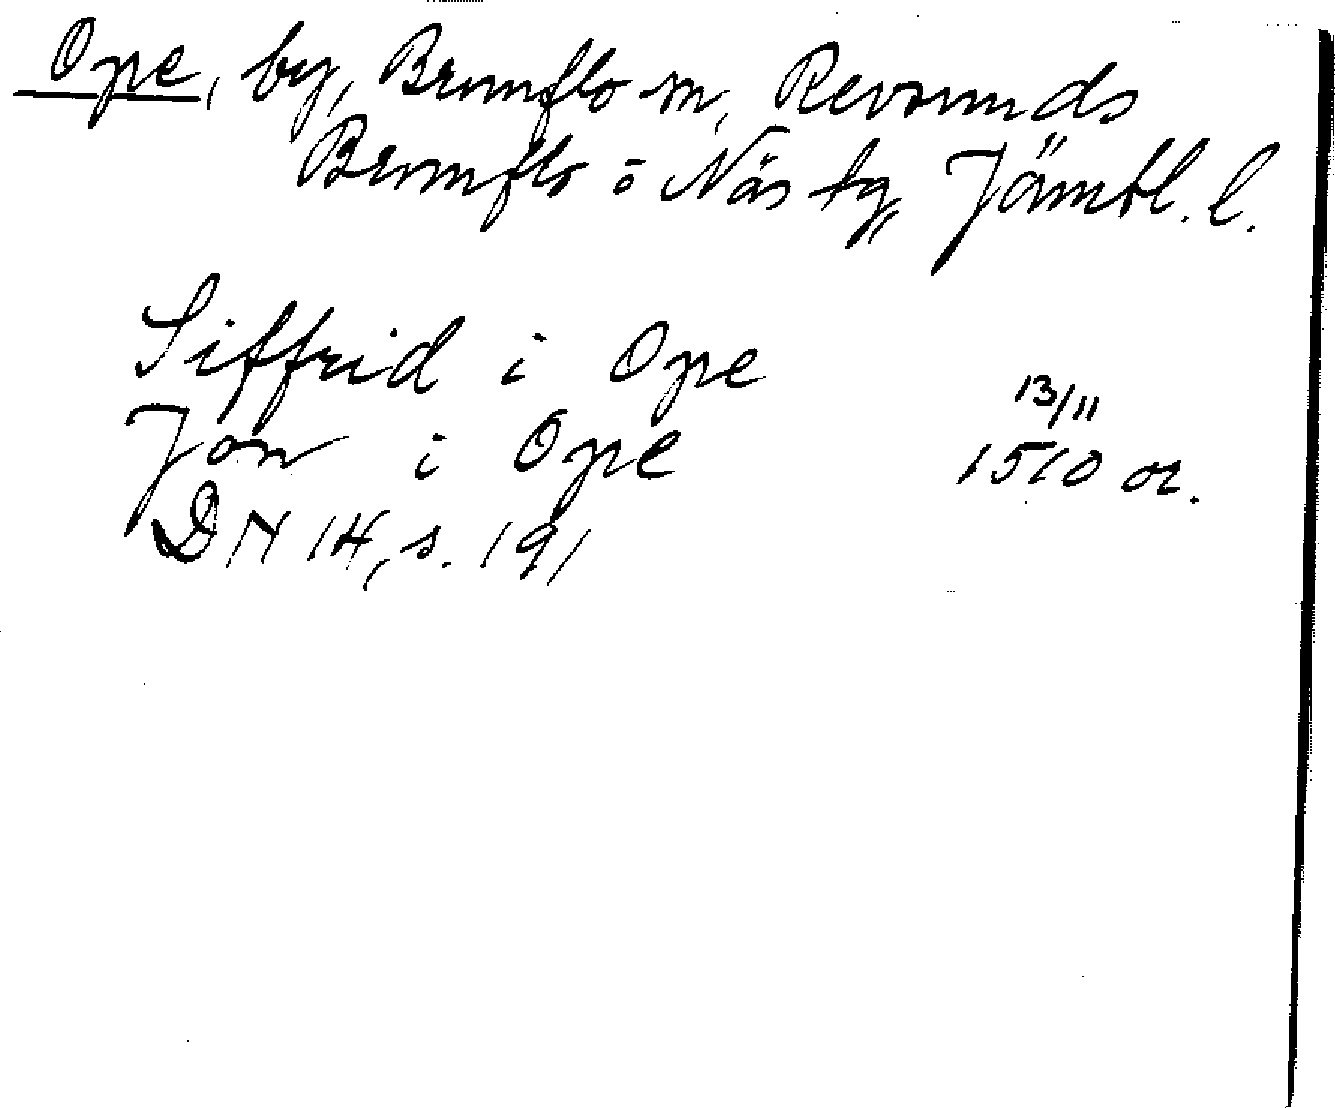 Ope, by, Brunflo sn, Revsunds
Brunflo o Näs tg, Jämtl. l.
Siffrid i Ope
Jon i Ope 13/11 1510 or.
DN 14, s. 191